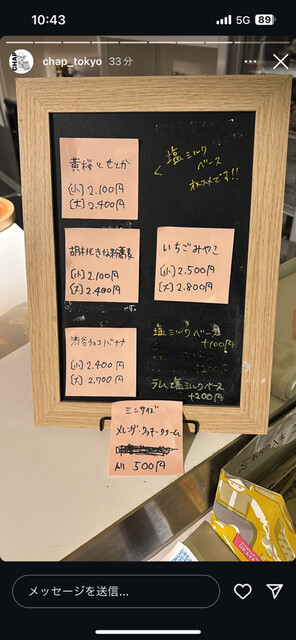 10:43
5G 89
chap_tokyo 33分
黄桜ともとか
(小) 2.100円
(大) 2.400円
< 塩ミルク
ベース
オススメです!!
(小) 2.100円
(大) 2.400円
いちごみやこ
(小) 2.500円
(大) 2.800円
渋谷チョコバナナ
(小) 2.400円
(大) 2.700円
塩ミルクベース
+100円
ラムor塩ミルクベース
+200円
ミニサイズ
メレンゲ・クッキー・クリーム
All 500円
メッセージを送信...